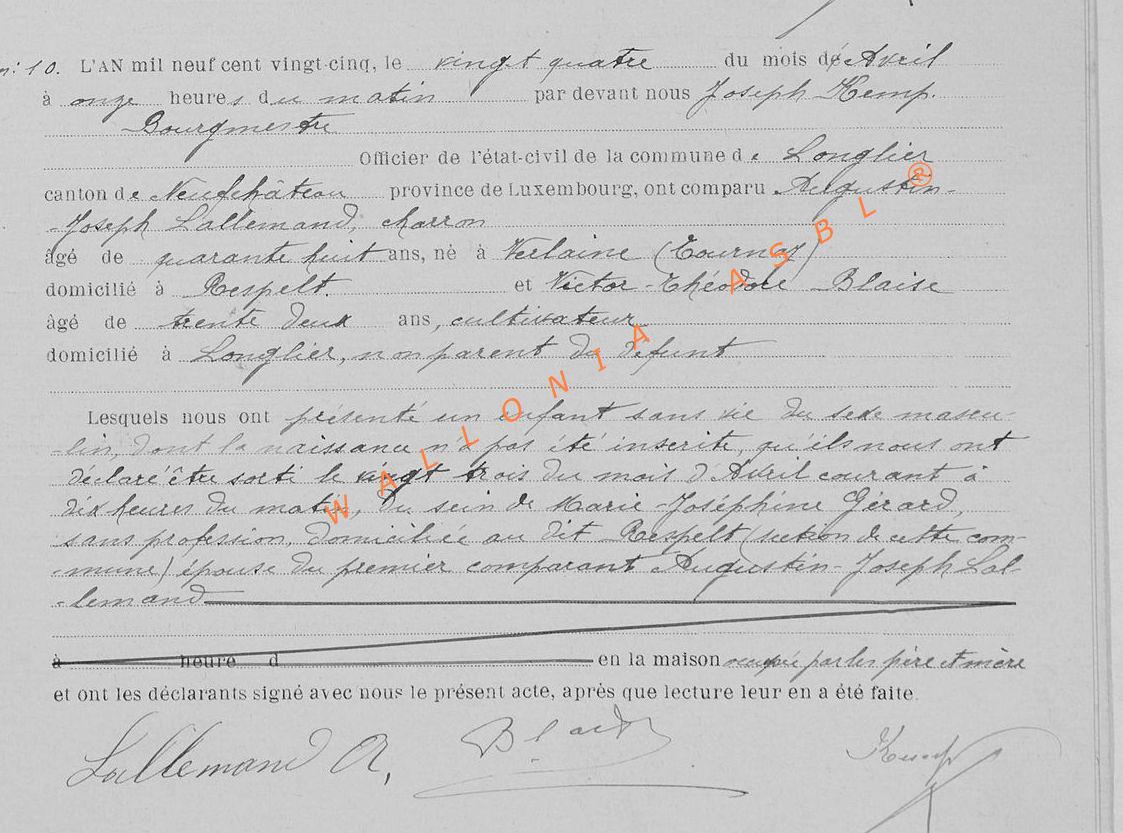 N: 10. L'AN mil neuf cent vingt-cinq, le vingt quatre du mois d'Avril
à onze heures du matin par devant nous Joseph Kemp.
Bourgmestre
Officier de l'état-civil de la commune de Longlier
canton de Neufchâteau province de Luxembourg, ont comparu Augustin-
-Joseph Lallemand, charron
âgé de quarante huit ans, né à Verlaine (Tournay)
domicilié à Respelt. et Victor-Théodore Blaise
âgé de trente deux ans, cultivateur
domicilié à Longlier, non parent du défunt
Lesquels nous ont présenté un enfant sans vie du sexe mascu-
-lin, dont la naissance n'a pas été inscrite, qu'ils nous ont
déclaré être sorti le vingt trois du mois d'Avril courant à
dix heures du matin, du sein de Marie-Joséphine Gérard,
sans profession, domiciliée au dit Respelt (section de cette com-
-mune) épouse du premier comparant Augustin-Joseph Lal-
-lemand
à heure d en la maison occupée par les père et mère
et ont les déclarants signé avec nous le présent acte, après que lecture leur en a été faite.
Lallemand A. Kemp
WALLONIA ASBL ®